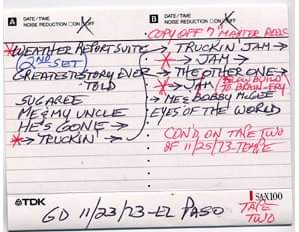 A DATE/TIME
NOISE REDUCTION ON OFF
*WEATHER REPORT SUITE
2ND SET
GREATEST STORY EVER
TOLD
SUGAREE
ME & MY UNCLE
HE'S GONE →
*→ TRUCKIN' →
B DATE/TIME
NOISE REDUCTION ON OFF
COPY OFF 7" MASTER REELS
TRUCKIN' JAM →
* → JAM →
→ THE OTHER ONE →
* → JAM
→ ME & BOBBY McGEE
EYES OF THE WORLD
CON'D ON TAPE TWO
OF 11/25/73-TEMPE
TDK
SA-X100
GD 11/23/73-EL PASO
TAPE
TWO